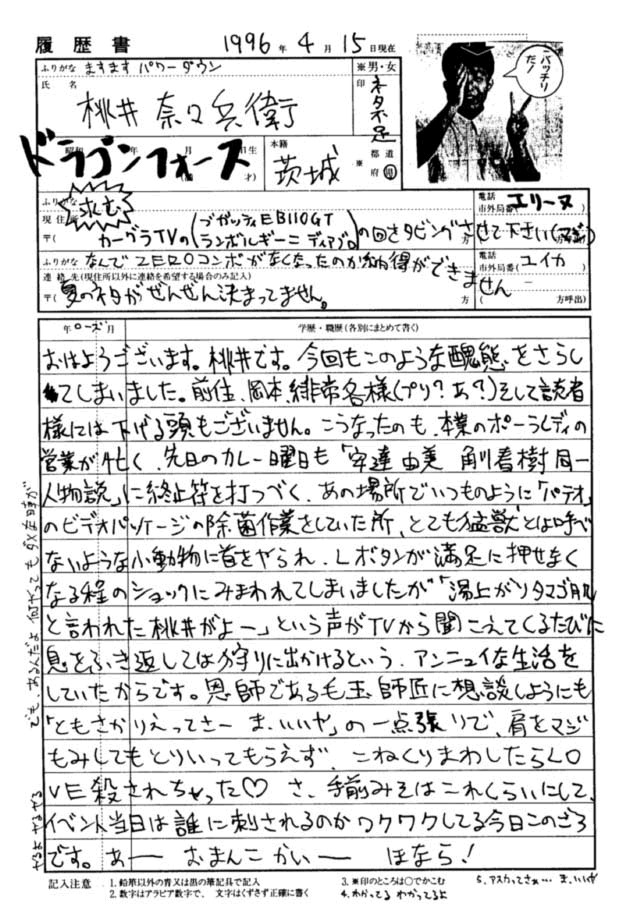 履歴書 1996年4月15日現在
ふりがな ますますパワーダウン ※男・女
氏名 桃井 奈々兵衛 印 ネタ不足
バッチリだ!
ドラゴンフォース
本籍 茨城 都道府県
ふりがな 電話 エリーヌ
現住所 求む 市外局番( )
〒( カーグラTVの(ブガッティEB110GT ランボルギーニ ディアブロ)の回さタビングさせて下さい(マジ)
ふりがな なんでZEROコンボがなくなったのか納得ができません 電話 ユイカ
連絡先(現住所以外に連絡を希望する場合のみ記入) 市外局番( )
〒( 夏のネタがぜんぜん決まってません。 方 ( 方呼出)
年 月 学歴・職歴(各別にまとめて書く)
おはようございます。桃井です。今回もこのような醜態をさらし
てしまいました。前住、岡本、緋常各様(プリ?あ?)そして読者
様には下げる頭もございません。こうなったのも、本業のポーラレディの
営業が忙しく、先日のカレー曜日も「安達由美 角川春樹 同一
人物説」に終止符を打つべく、あの場所でいつものように「パテオ」
のビデオパッケージの除菌作業をしていた所、とても猛獣とは呼べ
ないような小動物に首をやられ、Lボタンが満足に押せなく
なる程のショックにみまわれてしまいましたが「湯上がりタマゴ肌
と言われた桃井がよー」という声がTVから聞こえてくるたびに
息をふき返しては狩りに出かけるという、アンニュイな生活を
していたからです。恩師である毛玉師匠に想談しようにも
「ともさかりえってさー ま、いいや」の一点張りで、肩をマジ
もみしてもとりいってもらえず、こねくりまわしたらLO
VE殺されちゃった♡ さ、手前みそはこれくらいにして、
イベント当日は誰に刺されるのかワクワクしてる今日このごろ
です。あー おまんこかいー ほなら!
でも、あるんだよ 何やっても ダメな時が
やるよ やるやる
記入注意 1. 鉛筆以外の青又は黒の筆記具で記入 3. ※印のところは○でかこむ 5. アスカってさぁ… ま、いいや
2. 数字はアラビア数字で、文字はくずさず正確に書く 4. わかってる わかってるよ